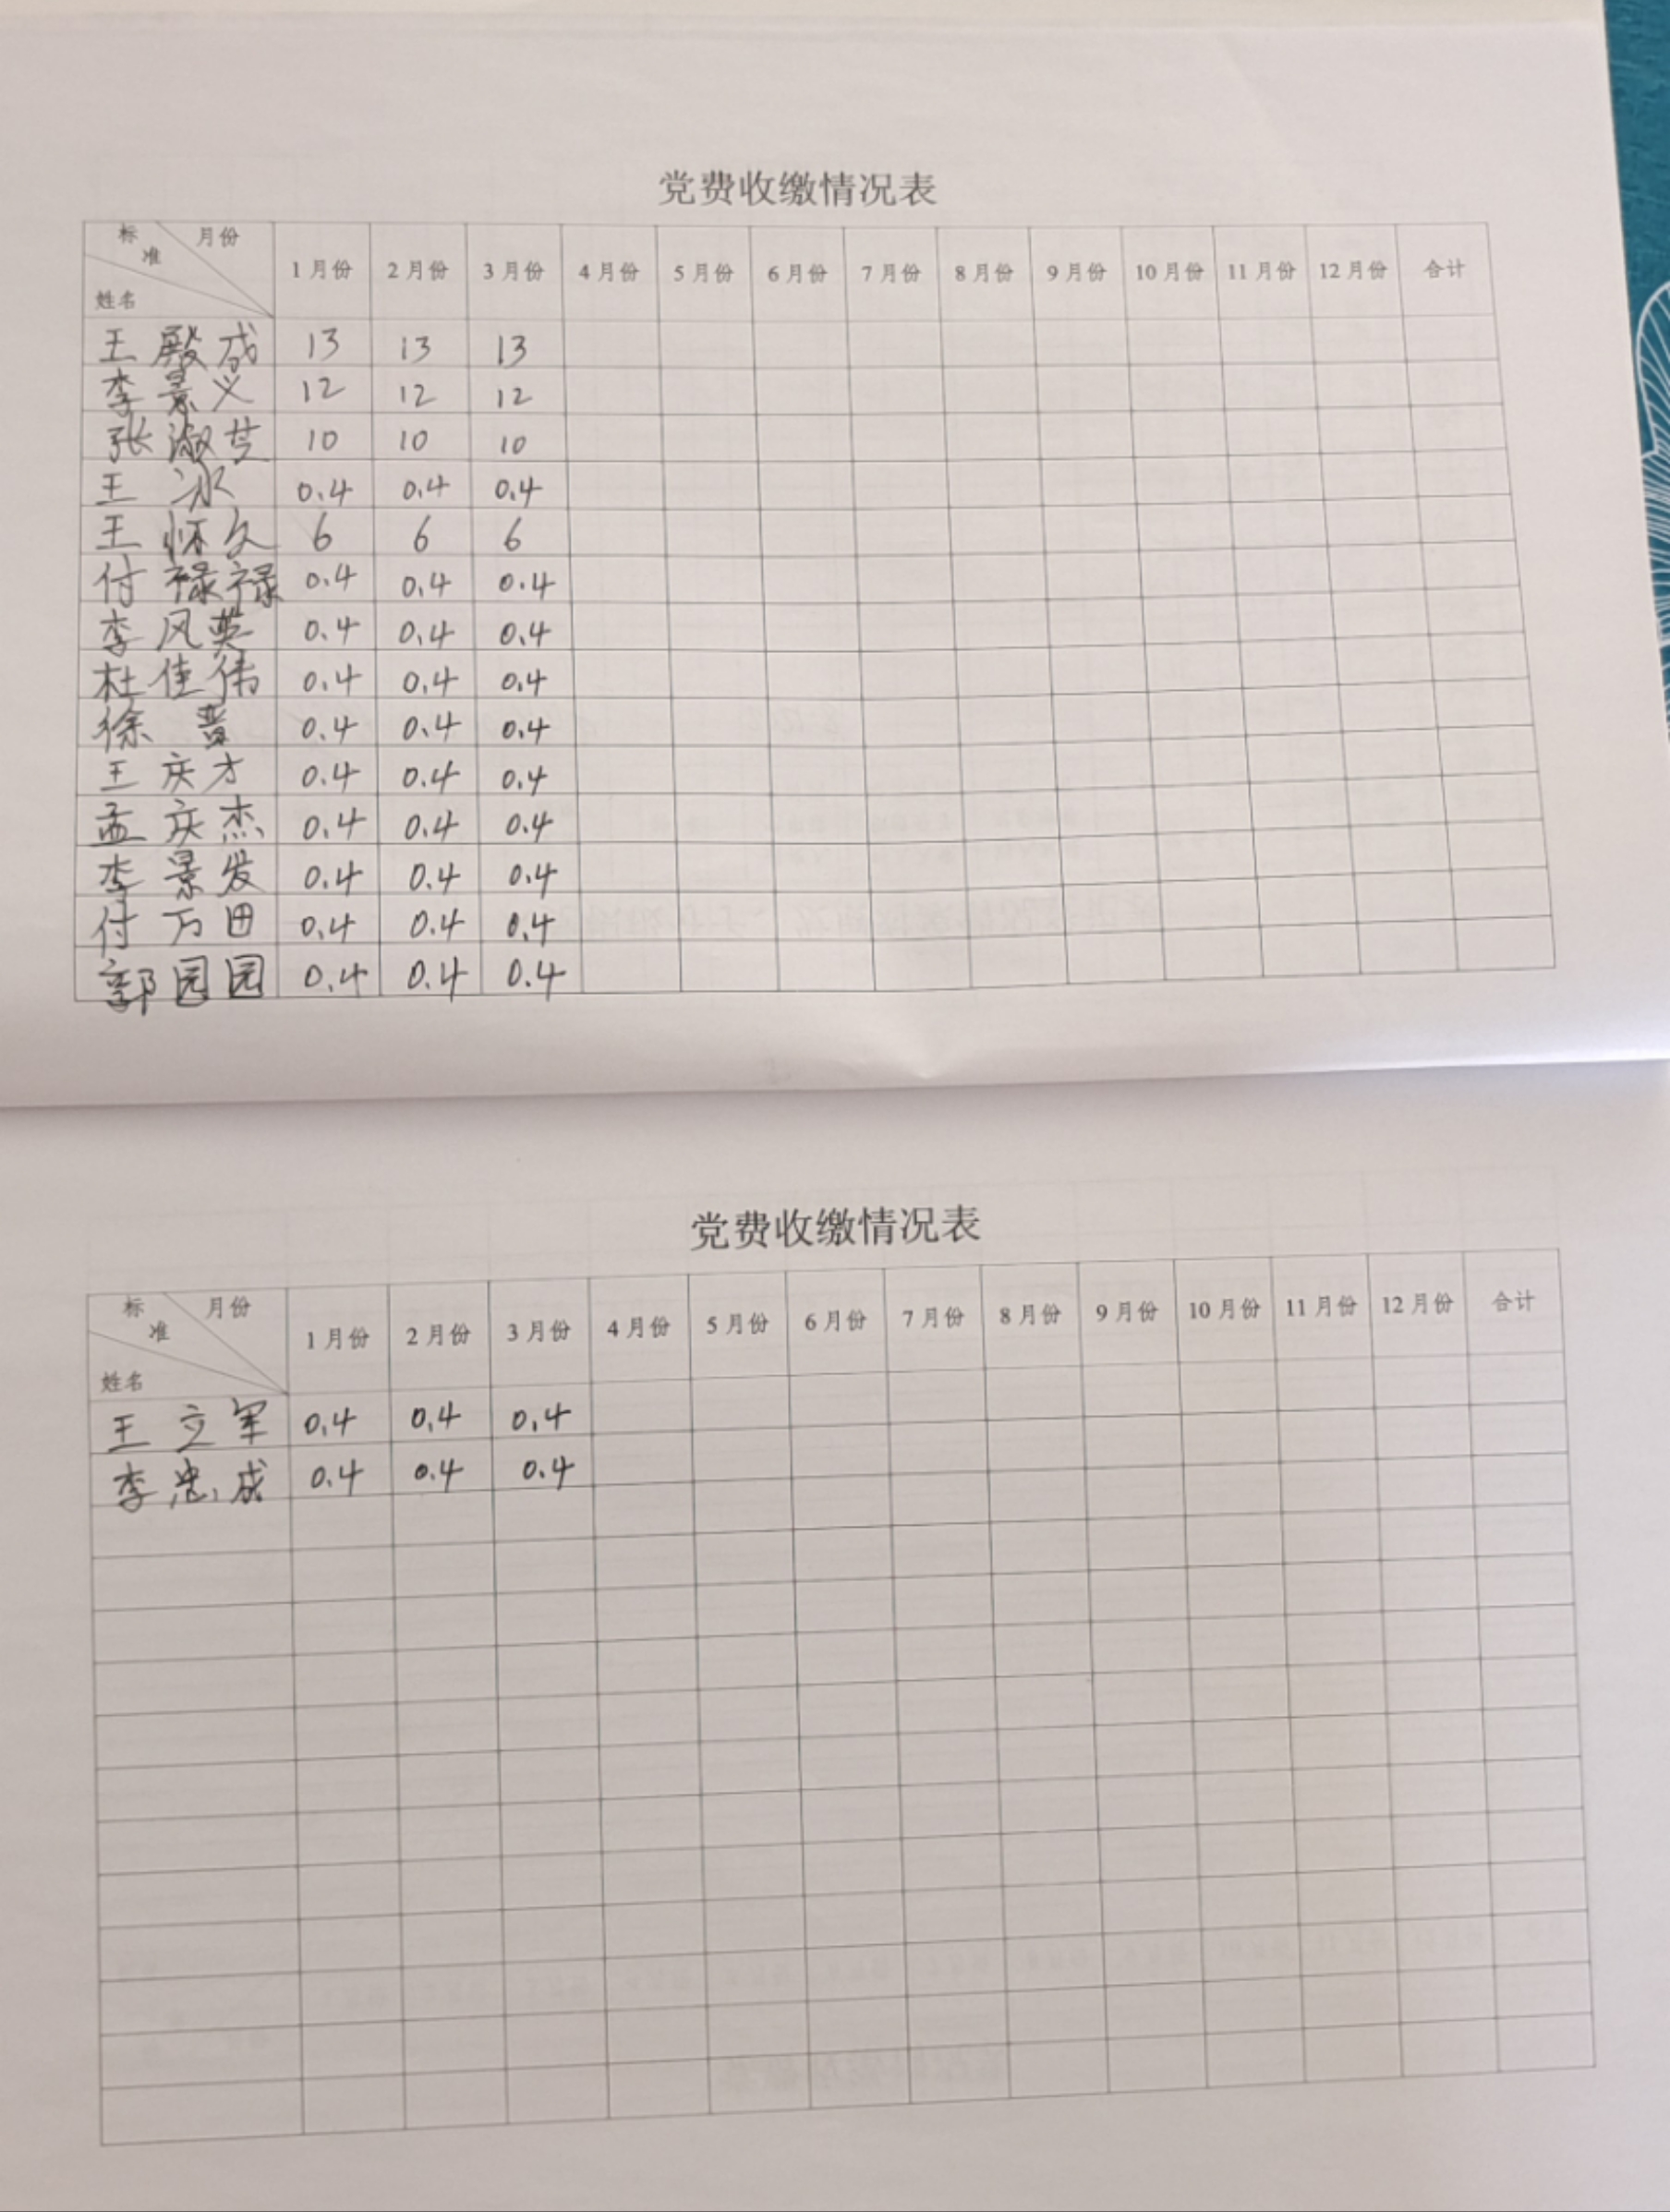 党费收缴情况表
标准 月份 姓名 1月份 2月份 3月份 4月份 5月份 6月份 7月份 8月份 9月份 10月份 11月份 12月份 合计
王殿成 13 13 13
李景义 12 12 12
张淑芝 10 10 10
王冰 0.4 0.4 0.4
王怀久 6 6 6
付禄禄 0.4 0.4 0.4
李风英 0.4 0.4 0.4
杜佳伟 0.4 0.4 0.4
徐 0.4 0.4 0.4
王庆才 0.4 0.4 0.4
孟庆杰 0.4 0.4 0.4
李景发 0.4 0.4 0.4
付万田 0.4 0.4 0.4
郭园园 0.4 0.4 0.4
党费收缴情况表
标准 月份 姓名 1月份 2月份 3月份 4月份 5月份 6月份 7月份 8月份 9月份 10月份 11月份 12月份 合计
王立军 0.4 0.4 0.4
李忠成 0.4 0.4 0.4